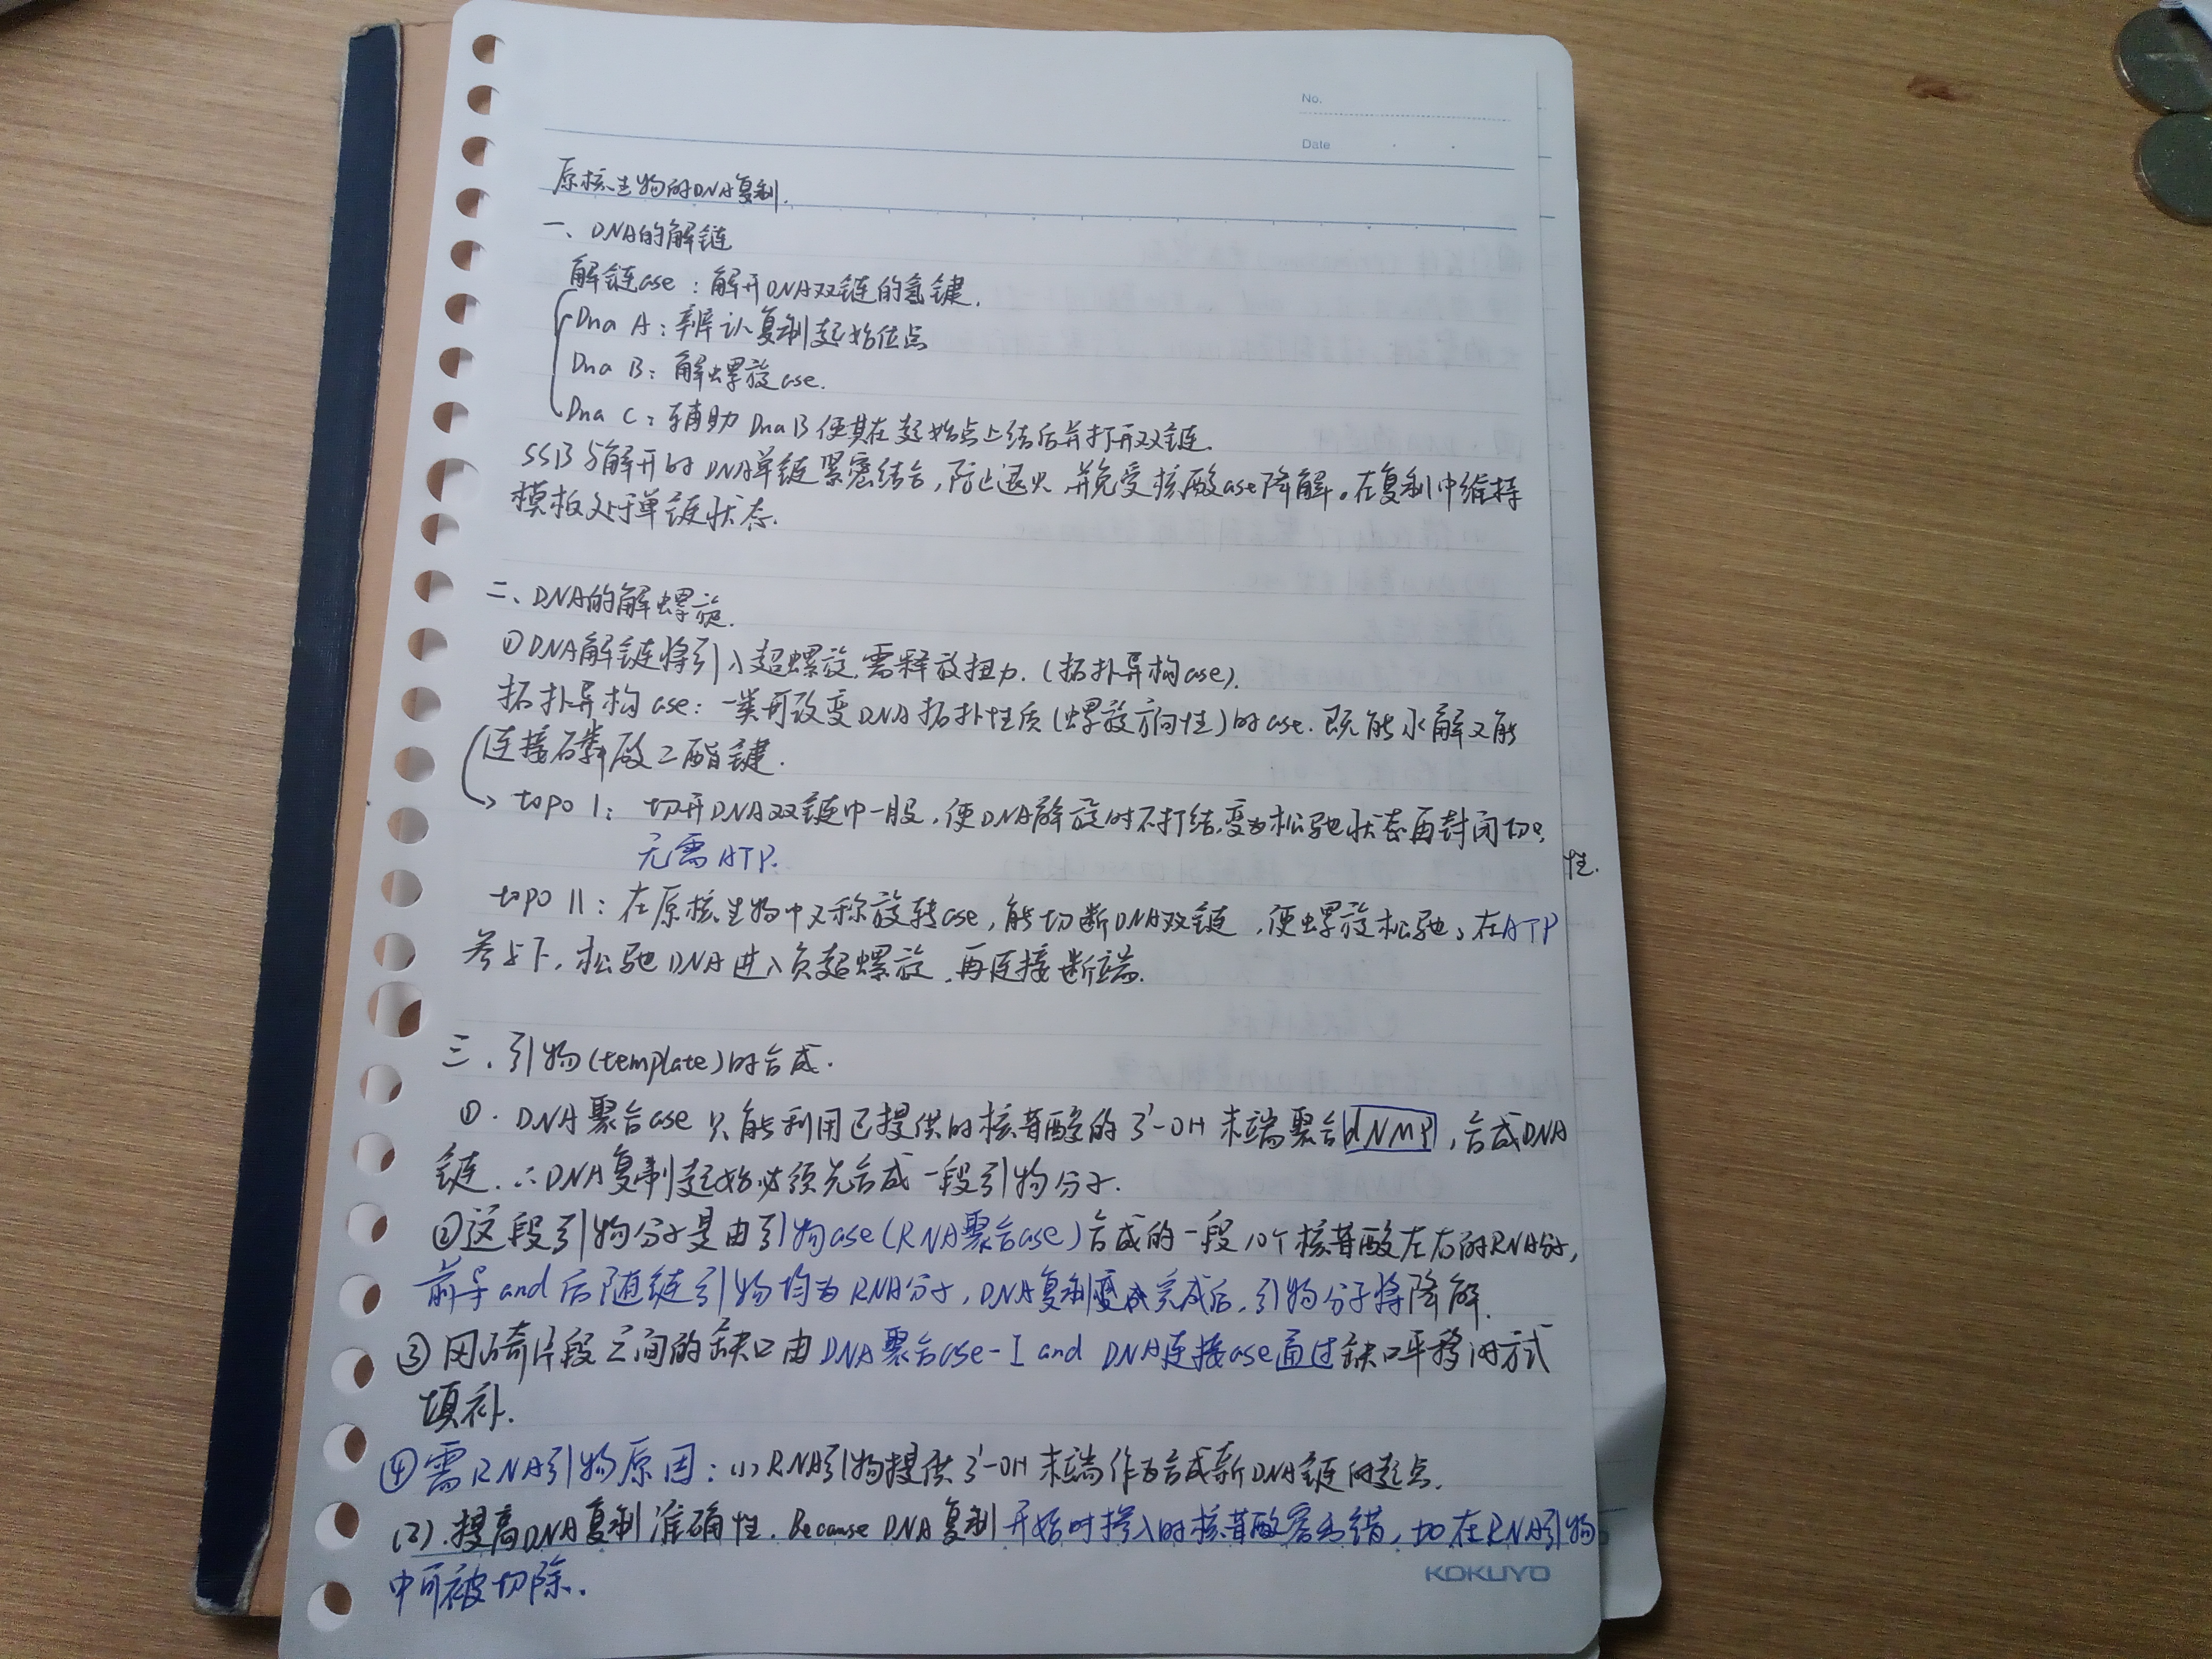 No.
Date
原核生物的DNA复制.
一、DNA的解链
解链ase：解开DNA双链的氢键.
Dna A：辨认复制起始位点
Dna B：解螺旋ase.
Dna C：辅助DnaB使其在起始点上结合并打开双链.
SSB与解开的DNA单链紧密结合,防止退火,并免受核酸ase降解。在复制中维持
模板处于单链状态.
二、DNA的解螺旋.
①DNA解链将引入超螺旋,需释放扭力.(拓扑异构ase).
拓扑异构ase：一类可改变DNA拓扑性质(螺旋方向性)的ase.既能水解又能
连接磷酸二酯键.
topo I：切开DNA双链中一股,使DNA解旋时不打结,变为松驰状态再封闭切口
无需ATP.
性.
topo II：在原核生物中又称旋转ase,能切断DNA双链,使螺旋松驰、在ATP
参与下,松驰DNA进入负超螺旋,再连接断端.
三.引物(template)的合成.
①.DNA聚合ase只能利用已提供的核苷酸的3'-OH末端聚合dNMP,合成DNA
链.∴DNA复制起始必须先合成一段引物分子.
②这段引物分子是由引物ase(RNA聚合ase)合成的一段10个核苷酸左右的RNA分子,
前导and后随链引物均为RNA分子,DNA复制完成后,引物分子将降解.
③冈崎片段之间的缺口由DNA聚合ase-I and DNA连接ase通过缺口平移的方式
填补.
④需RNA引物原因：(1)RNA引物提供3'-OH末端作为合成新DNA链的起点.
(2).提高DNA复制准确性.Because DNA复制开始时掺入的核苷酸容易错,加在RNA引物
中可被切除.
KOKUYO